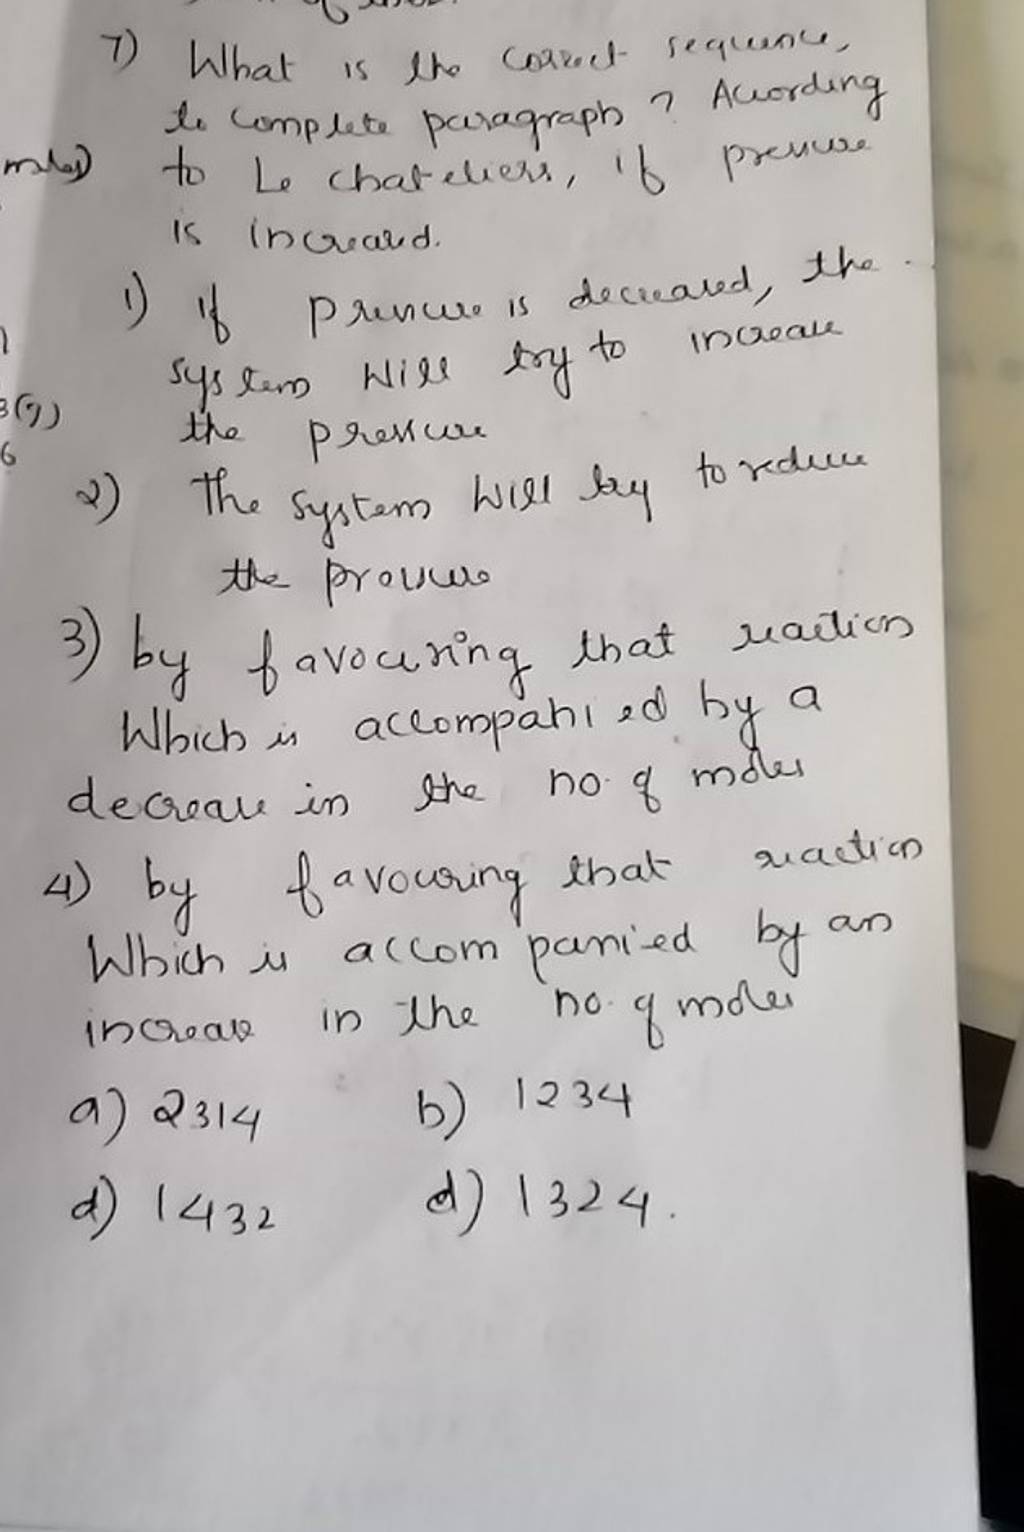 7) What is the correct sequence,
to complete paragraph ? According
to Le chateliers, if pressure
is increased.
1) if pressure is decreased, the
system will try to increase
the pressure
2) The system will try to reduce
the pressure
3) by favouring that reaction
Which is accompanied by a
decrease in the no. of moles
4) by favouring that reaction
Which is accompanied by an
increase in the no. of moles
a) 2314 b) 1234
d) 1432 d) 1324.
moles)
3(g)
6